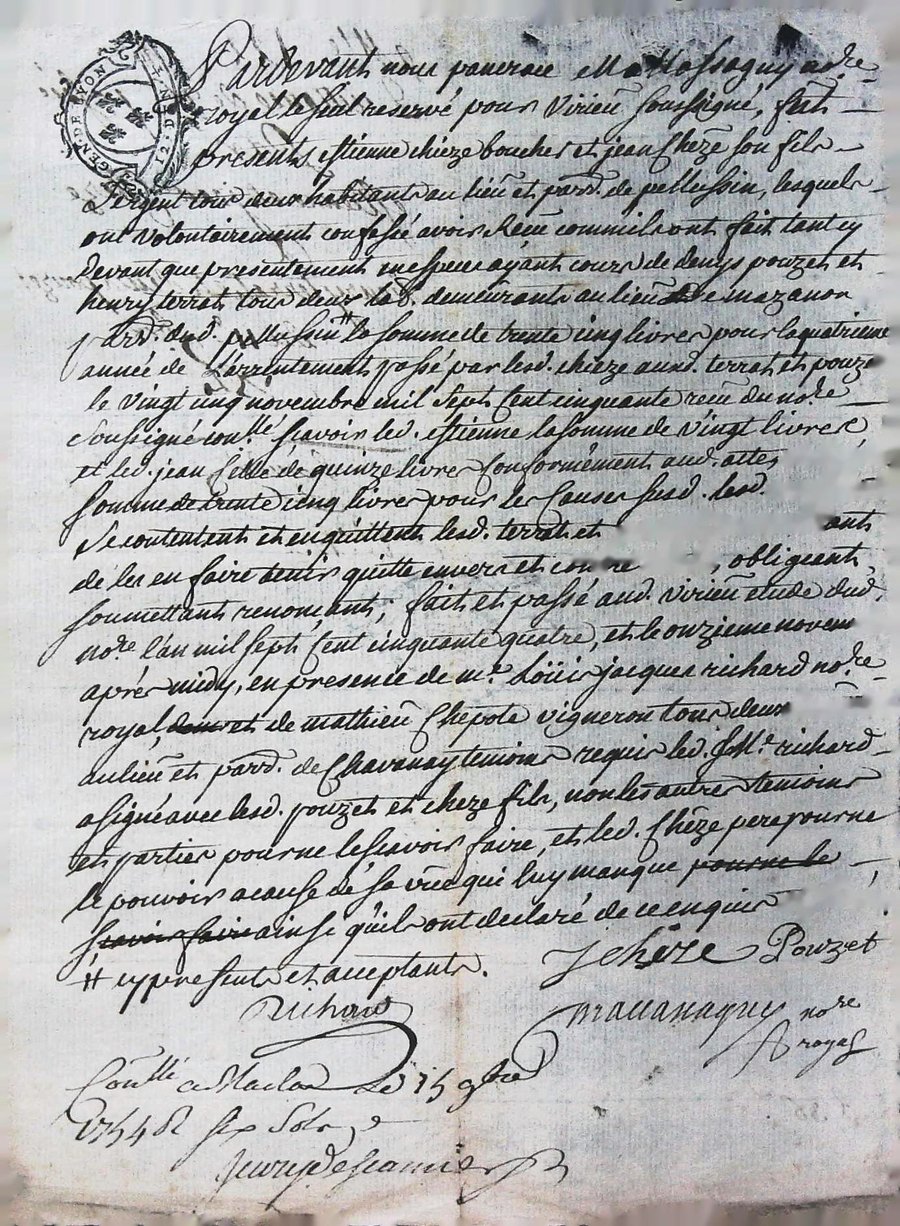 GEN. DE LYON
Pardevant nous pancrace no.re
royal le seul reservé pour Virieu soussigné, fait
presents estienne chieze boucher et jean Cheze son fils
Sergent tous deux habitants au lieu et parr. de pellussin, lesquels
ont volontairement confessé avoir Receu comme ils ont fait tant cy
devant que presentement en espece ayant cours de denys pouzet et
henry terrat tous deux lab. demeurants au lieu de mazanon
parr. dud. pellussin # la somme de trente cinq livres pour la quatrieme
année de L'arrentement passé par lesd. chieze auxd. terrat et pouze
le vingt cinq novembre mil sept Cent cinquante receu du no.re
soussigné con.llé scavoir led. estienne la somme de vingt livres,
et led. jean Celle de quinze livres Conformément aud. actes
somme de trente cinq livres pour les Causes susd. lesd.
Se contentent et en quittent lesd. terrat et ants
de les en faire tenir quitte envers et contre , obligeant,
soumettant renonçant; fait et passé aud. Virieu etude dud.
no.re l'an mil sept Cent cinquante quatre, et le onzieme novem
aprés midy, en presence de m.e Loüis jacques richard no.re
royal, et de mathieu Chepole vigneron tous deux
au lieu et parr. de Chavanay temoins requis led. M.e richard
a signé avec lesd. pouzet et cheze fils, non les autres temoins
et parties pour ne le scavoir faire, et led. Chèze pere pour ne
le pouvoir a cause de sa vüe qui luy manque pour ne le
scavoir faire ainse qu'ils ont declaré de ce enquis
# cy presents et acceptants.
J cheze Pouzet
Richard
no.re
royal
Con.llé a Maclas le 15 9bre
1754 R six Sols